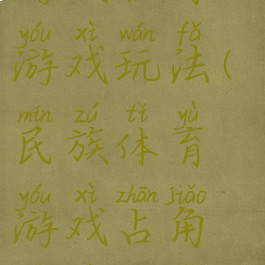 yóu xì wán fǎ
游戏玩法(
mín zú tǐ yù
民族体育
yóu xì zhān jiǎo
游戏占角